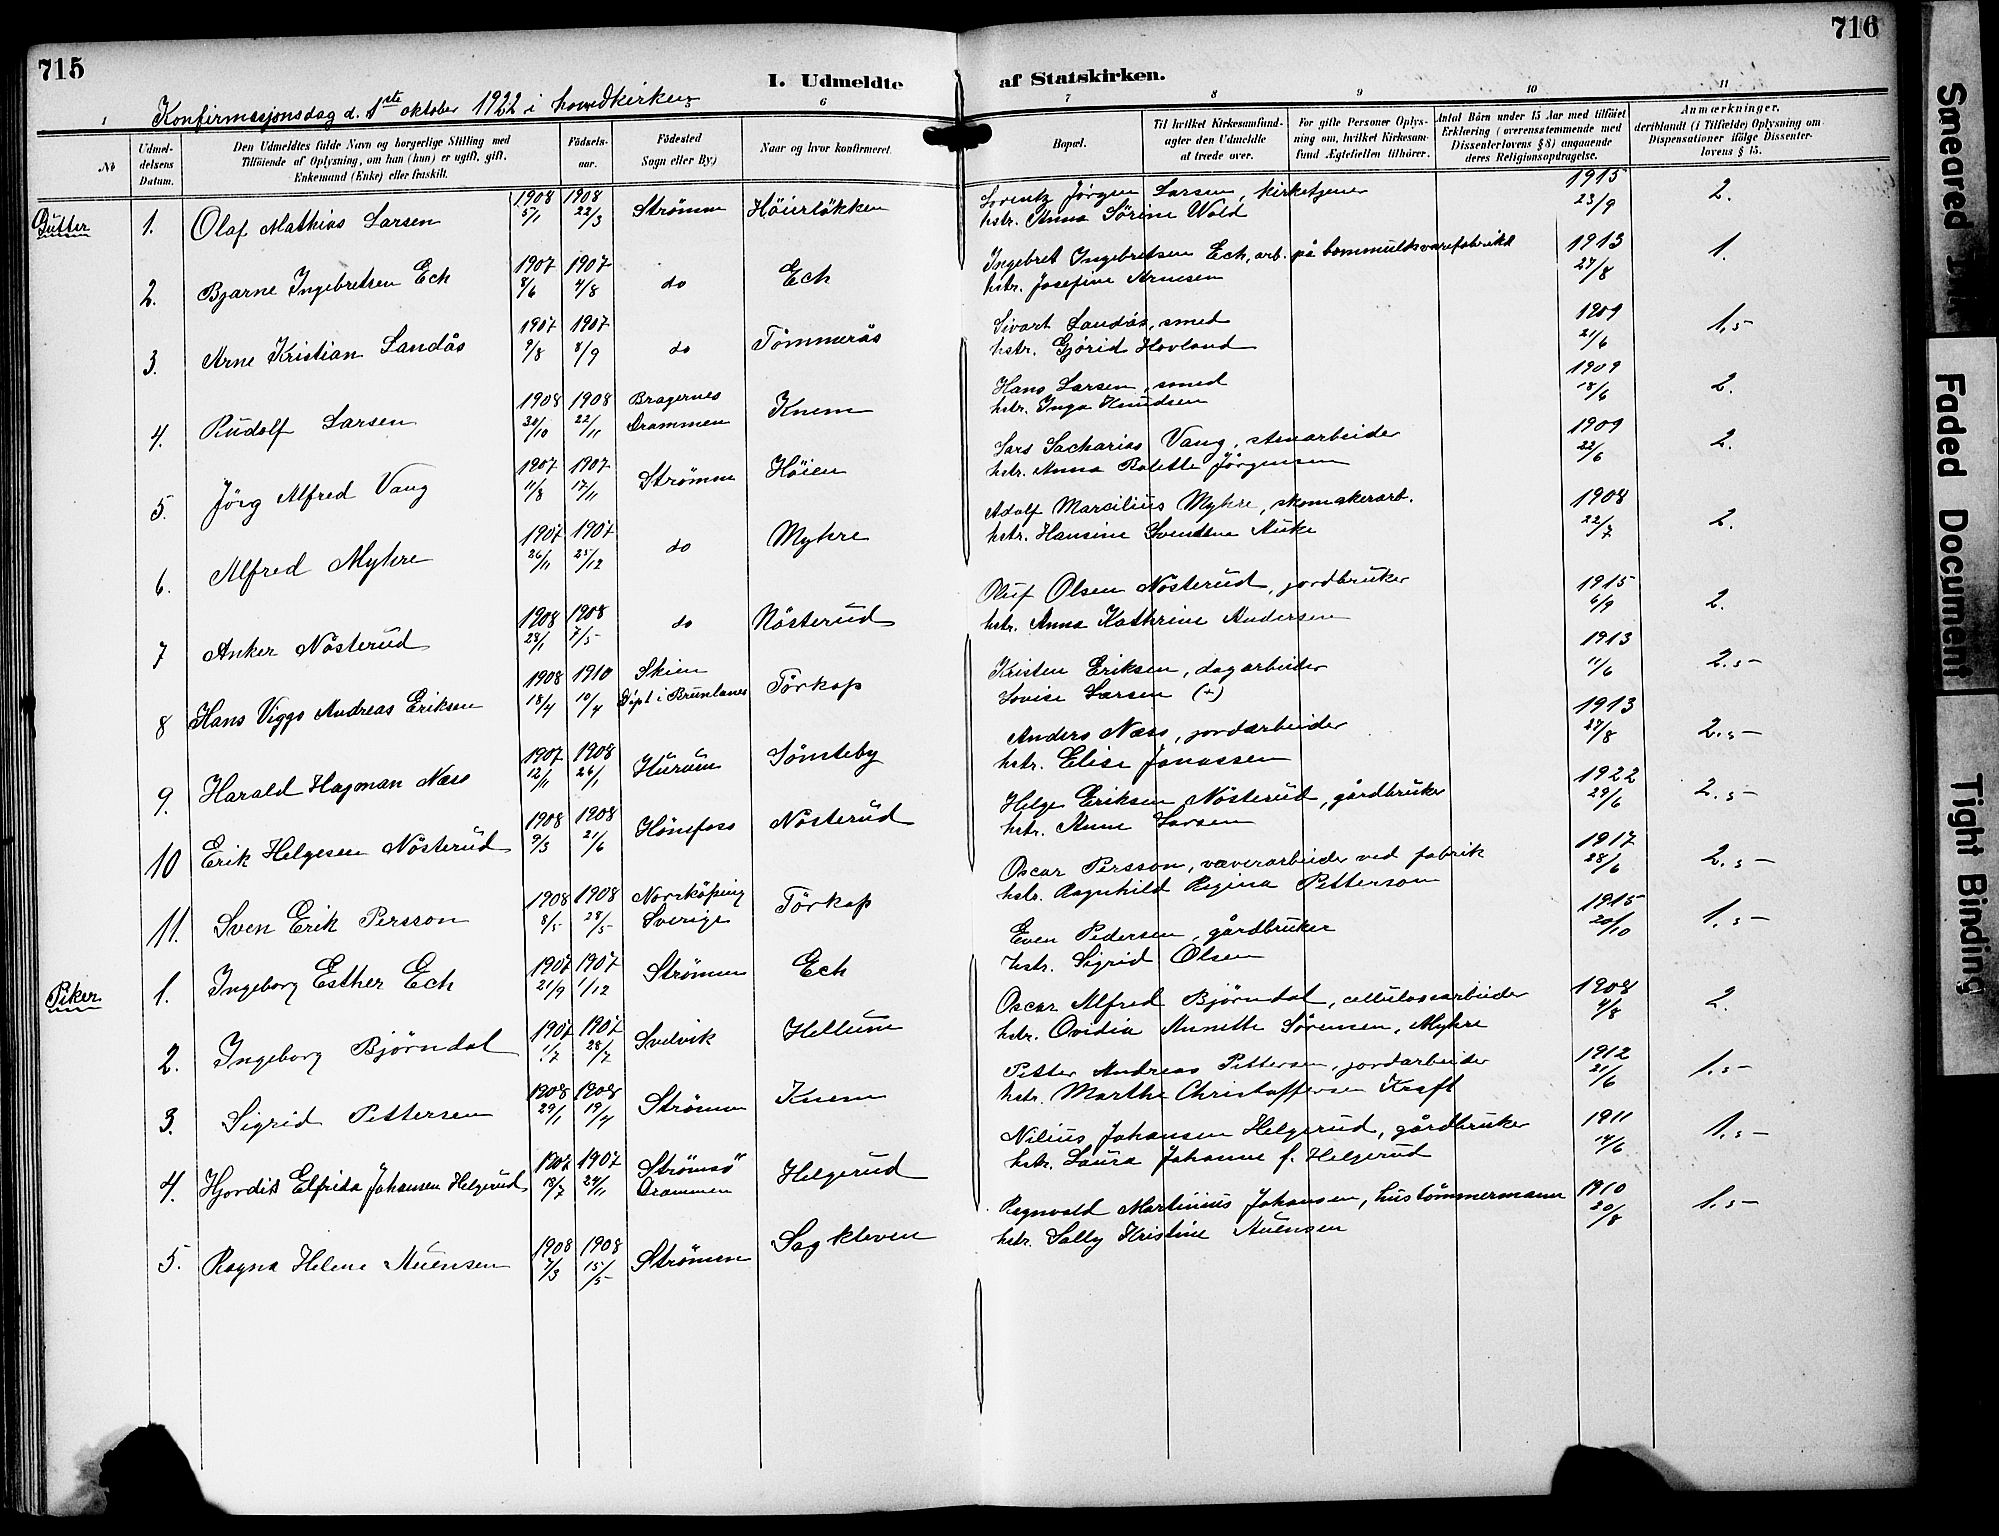 715
716
I. Udmeldte af Statskirken.
Konfirmasjonsdag d. 1ste oktober 1922 i hovedkirken
1
6
7
8
9
10
11
№
Udmel-
delsens
Datum.
Den Udmeldtes fulde Navn og borgerlige Stilling med
Tilföiende af Oplysning, om han (hun) er ugift, gift,
Enkemand (Enke) eller fraskilt.
Födsels-
aar.
Födested
Sogn eller By)
Naar og hvor konfirmeret.
Bopæl.
Til hvilket Kirkesamfund-
agter den Udmeldte
at træde over.
For gifte Personer Oplys-
ning om, hvilket Kirkesam-
fund Ægtefællen tilhörer.
Antal Börn under 15 Aar med tilföiet
Erklæring (overensstemmende med
Dissenterlovens § 8) angaaende
deres Religionsopdragelse.
Anmærkninger,
deriblandt (i Tilfælde) Oplysning om
Dispensationer ifölge Dissenter-
lovens § 15.
Gutter 1. Olaf Mathias Larsen 1908 5/1 1908 22/3 Strömm Höierlökken Lorentz Jörgen Larsen, kirketjener 1915 23/9 2.
hstr. Anna Sörine Wold
2. Bjarne Ingebretsen Eck 1907 8/6 1907 4/8 do Eck Ingebret Ingebretsen Eck, arb. på bommuldsvarefabrikk 1913 27/8 1.
hstr. Josefine Arnesen
3. Arne Kristian Landås 1907 9/8 1907 8/9 do Tömmerås Sivart Landås, smed 1909 21/6 1.5
hstr. Gjörid Hovland
4. Rudolf Larsen 1908 30/10 1908 22/11 Bragernes Drammen Knem Hans Larsen, smed 1909 18/6 2.
hstr. Inga Knudsen
5. Jörg Alfred Vang 1907 11/8 1907 17/11 Strömm Höien Lars Sacharias Vang, stenarbeider 1909 22/6 2.
hstr. Anna Bolette Jörgensen
6. Alfred Myhre 1907 26/11 1907 25/12 do Myhre Adolf Marcilius Myhre, skomakerarb. 1908 22/7 2.
hstr. Hansine
7 Anker Nösterud 1908 28/1 1908 7/5 do Nösterud Oluf Olsen Nösterud, jordbruker 1915 6/9 2.
hstr. Anna Kathrine Andersen
8 Hans Viggo Andreas Eriksen 1908 18/4 1910 10/4 Skien Döpt i Brunlanes Törkop Kristen Eriksen, dagarbeider 1913 11/6 2.5
Lovise Larsen (+)
9. Harald Hagman Næss 1907 12/11 1908 26/1 Hurum Sömsteby Anders Næss, jordarbeider 1913 27/8 2.5
hstr. Elise Jonassen
10 Erik Helgesen Nösterud 1908 9/3 1908 21/6 Hönefoss Nösterud Helge Eriksen Nösterud, gårdbruker 1922 29/6 2.5
hstr. Anne Larsen
11. Sven Erik Persson 1908 8/5 1908 28/5 Norrköping Sverige Törkop Oscar Persson, væverarbeider ved fabrik 1917 28/6 2.5
hstr. Ragnhild Regina Petterson
Piker 1. Ingeborg Esther Eck 1907 21/9 1907 1/12 Strömm Eck Even Pedersen, gårdbruker 1915 20/10 1.5
hstr. Sigrid Olsen
2. Ingeborg Björndal 1907 1/7 1907 28/7 Svelvik Hellum Oscar Alfred Björndal, cellulosearbeider 1908 4/8 2.
hstr. Ovidia Annette Sörensen, Myhre
3. Sigrid Pettersen 1908 29/1 1908 19/4 Strömm Knem Petter Andreas Pettersen, jordarbeider 1912 21/6 1.5
hstr. Marthe Christoffersen Kraft
4. Hjordis Elfrida Johansen Helgerud 1907 18/7 1907 24/11 Strömsö Drammen Helgerud Nilius Johansen Helgerud, gårdbruker 1911 14/6 1.5
hstr. Laura Johanne f. Helgerud
5. Ragna Helene Auensen 1908 7/3 1908 15/5 Strömm Sagkleven Ragnvald Martinius Johansen, hustömmermann 1910 20/8 1.5
hstr. Sally Kristine Auensen
Smeared Ink
Faded Document
Tight Binding